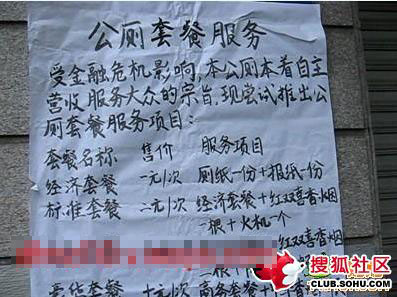 公厕套餐服务
受金融危机影响,本公厕本着自主
营收服务大众的宗旨.现尝试推出公
厕套餐服务项目:
套餐名称 售价 服务项目
经济套餐 一元/次 厕纸一份+报纸一份
标准套餐 二元/次 经济套餐+红双喜香烟
一根+火机一个
红双喜香烟
豪华套餐 十元/次 商务套餐+
搜狐社区
CLUB.SOHU.COM